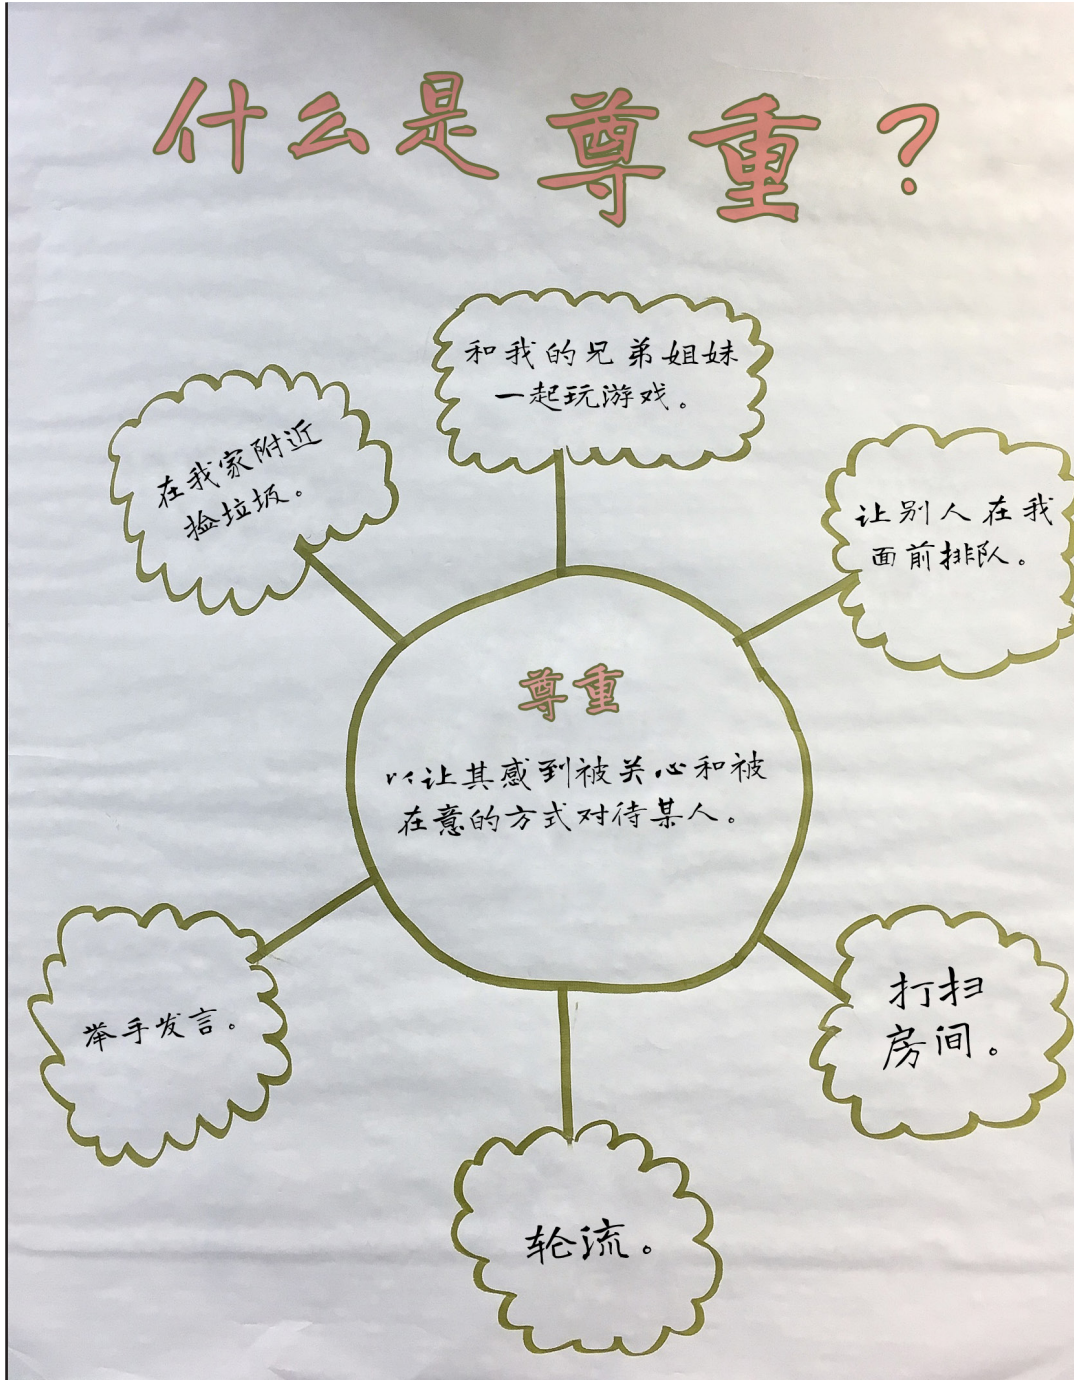 什么是尊重？
和我的兄弟姐妹
一起玩游戏。
在我家附近
捡垃圾。
让别人在我
面前排队。
尊重
以让其感到被关心和被
在意的方式对待某人。
举手发言。
打扫
房间。
轮流。